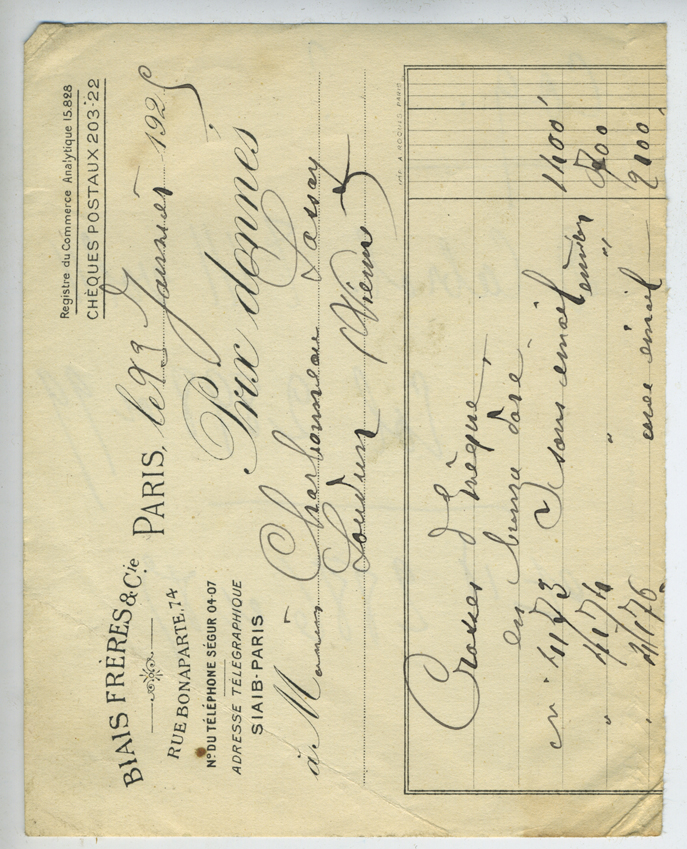 BIAIS FRÈRES & Cie
RUE BONAPARTE, 74
No DU TÉLÉPHONE SÉGUR 04-07
ADRESSE TÉLÉGRAPHIQUE
SIAIB-PARIS
Registre du Commerce Analytique 15.828
CHÈQUES POSTAUX 203-22
PARIS, le 23 Janvier 1925
Prix donnés
à Charbonneau Lassay
Loudun (Vienne)
Crosses d'évêque,
en bronze doré
4173 sans émail 1400
" 4174 " " 700
" 4176 avec émail 2100